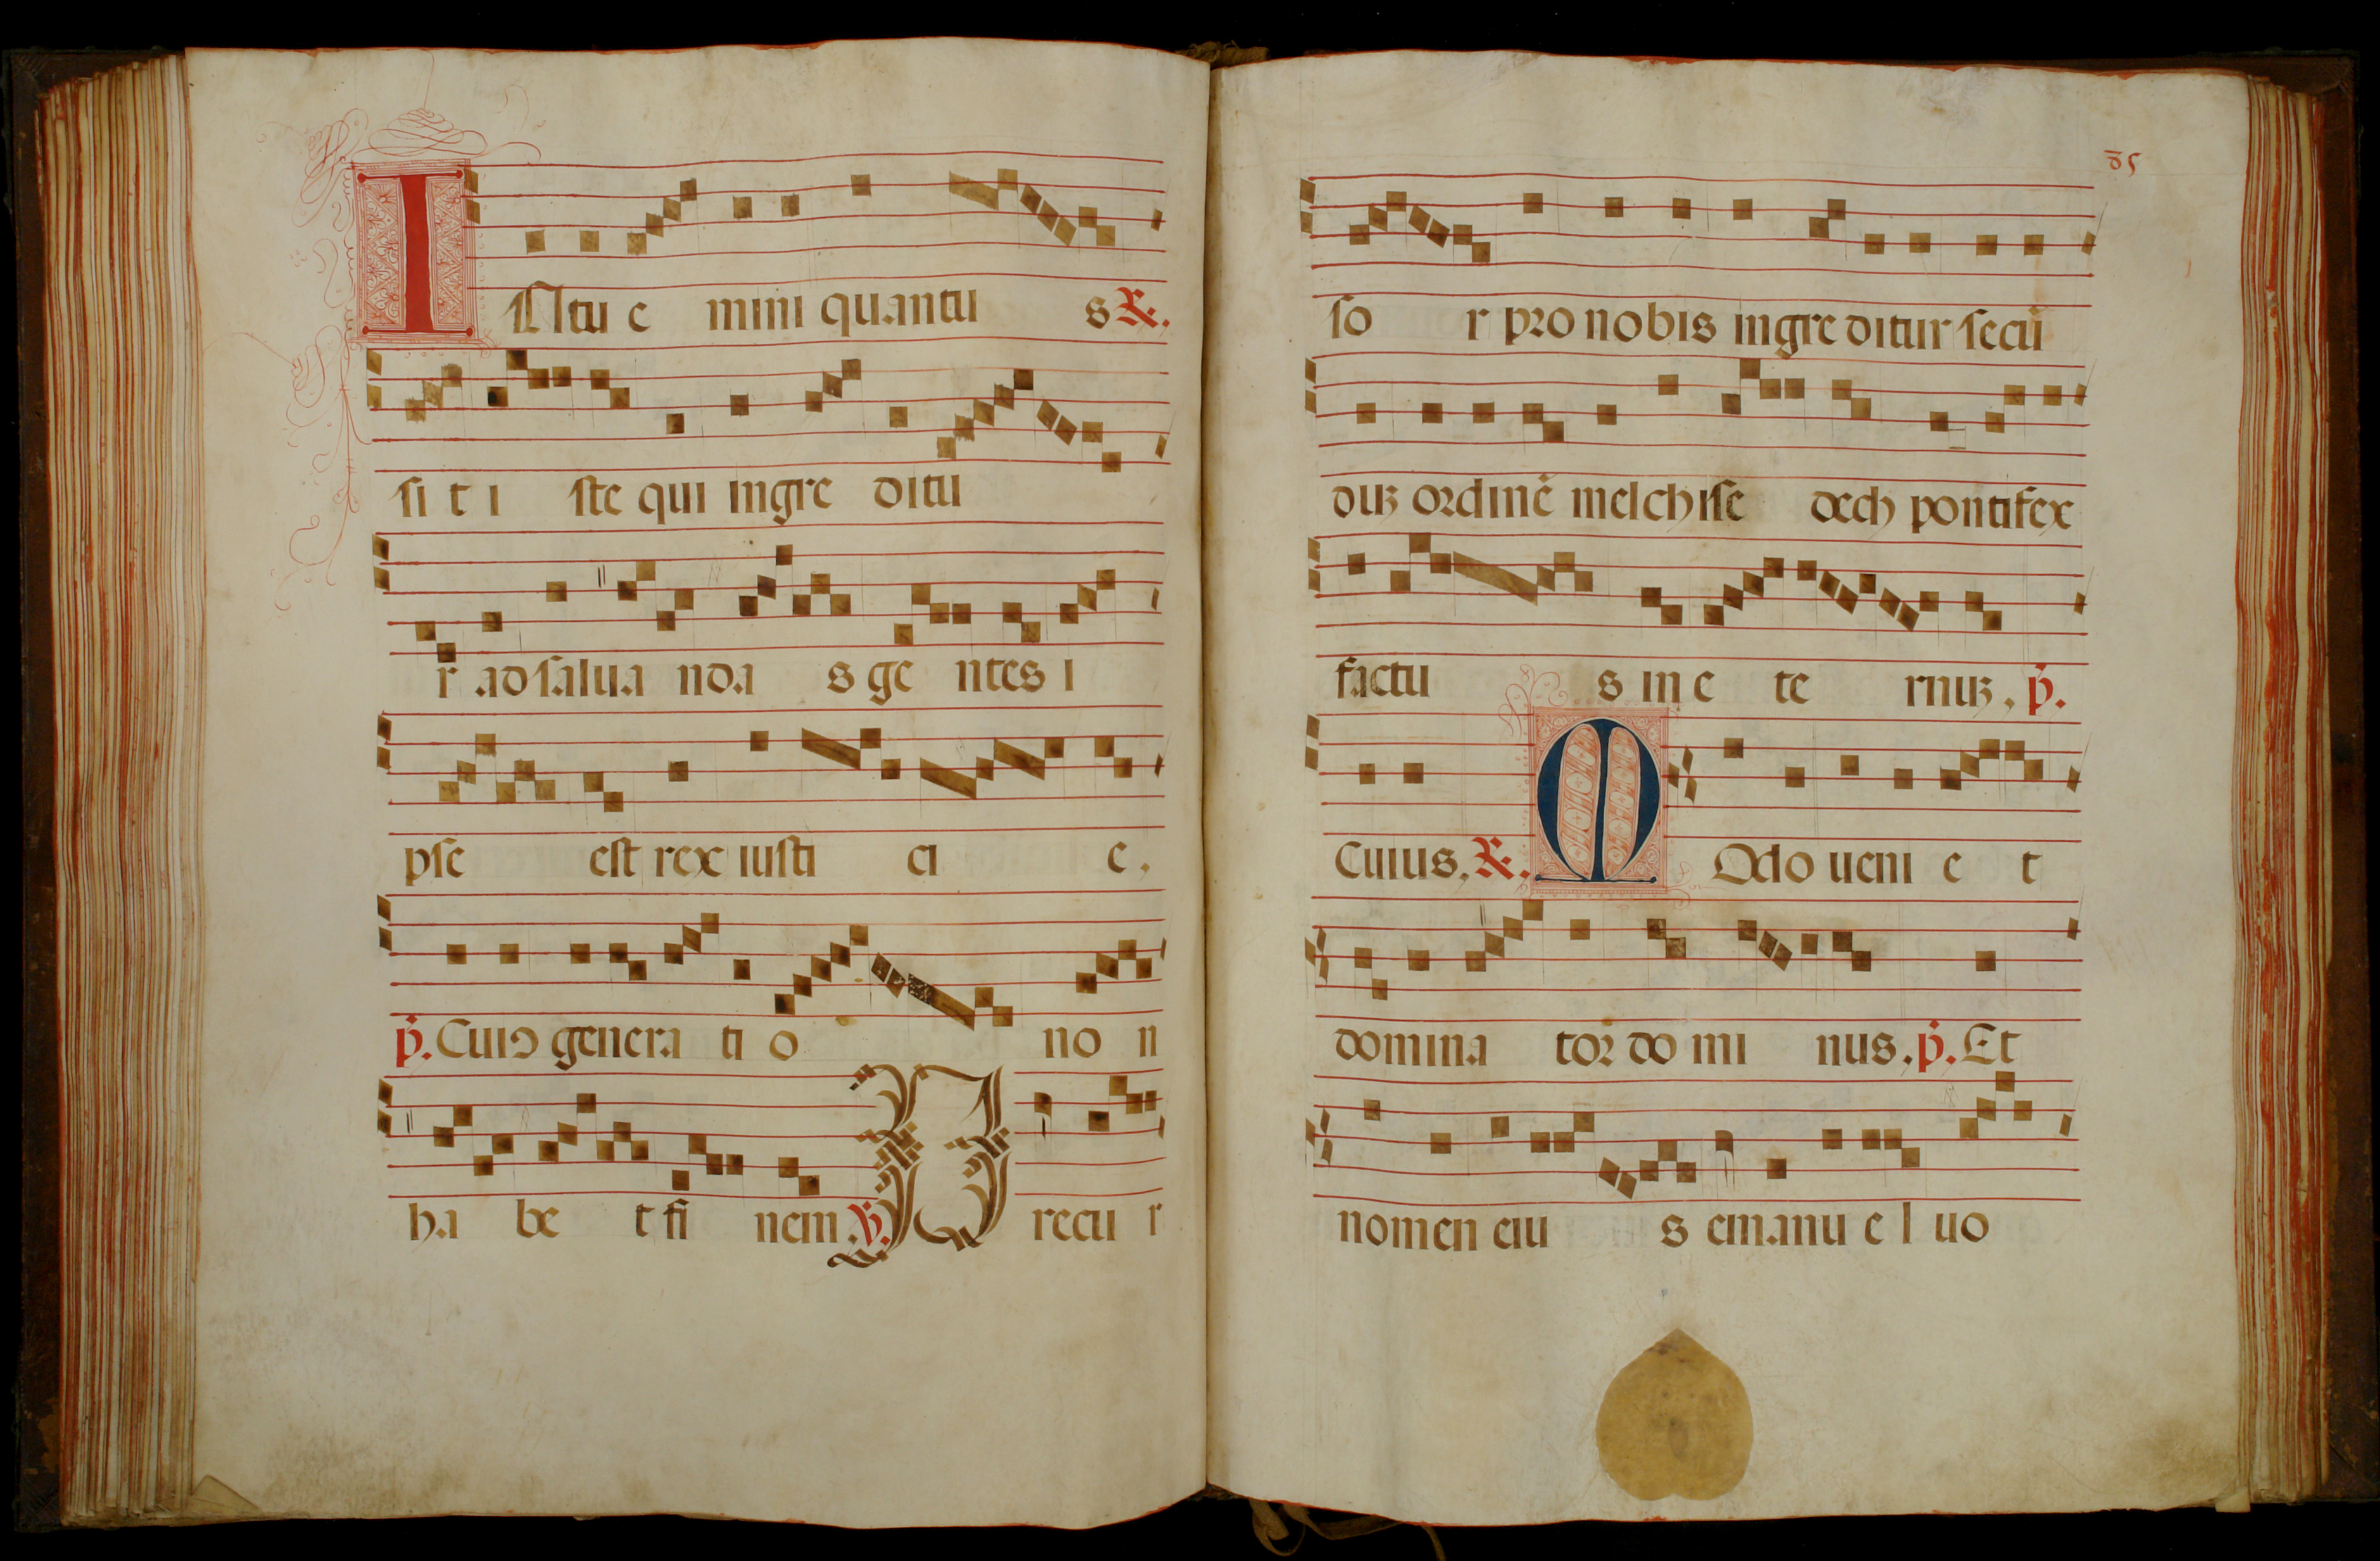 Intuemini quantus ℟.
sit iste qui ingreditu
r ad saluandas gentes i
pse est rex iusticie.
p̄. Cui9 generatio non
habet finem. ℣. Precur
85
sor pro nobis ingreditur secū
duʒ ordinē melchisedech pontifex
factus in eternuʒ, p̄.
Cuius. ℟. Modo ueniet
dominator dominus. p̄. Et
nomen eius emanuel uo